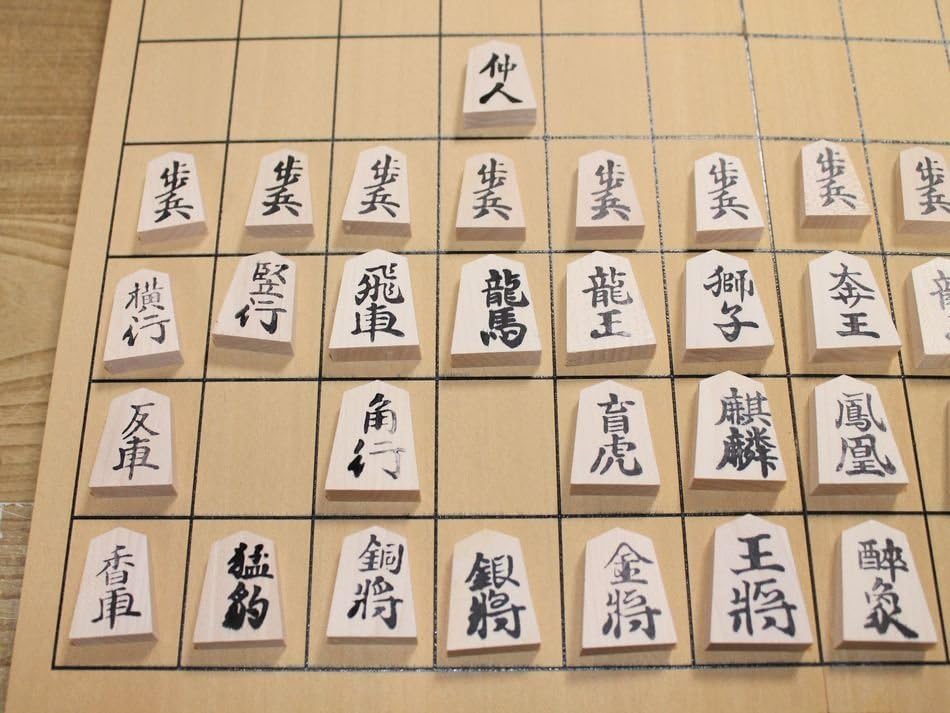 仲人
歩兵 歩兵 歩兵 歩兵 歩兵 歩兵 歩兵 歩兵
横行 竪行 飛車 龍馬 龍王 獅子 奔王
反車 角行 盲虎 麒麟 鳳凰
香車 猛豹 銅將 銀將 金將 王將 醉象